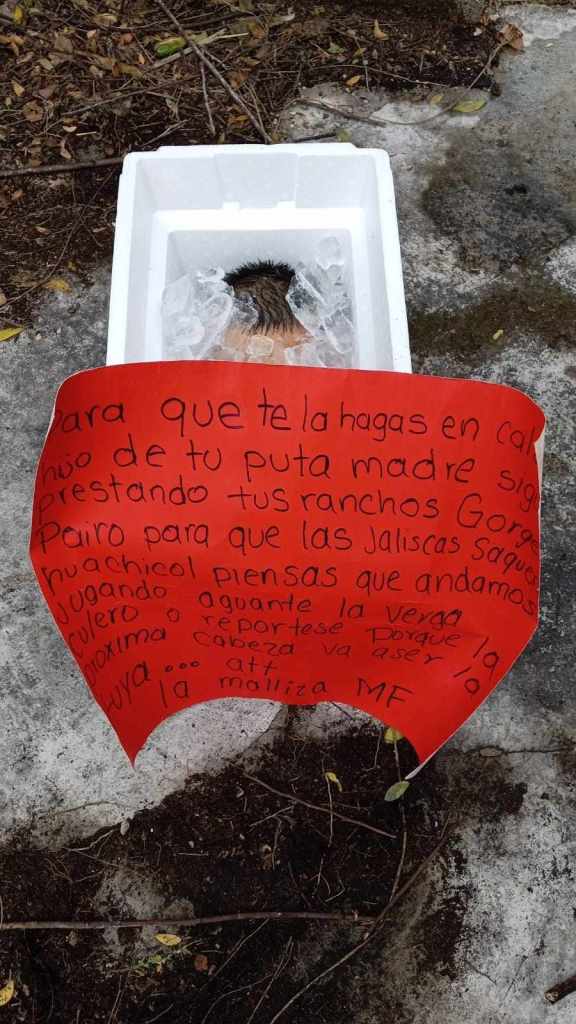 Para que te la hagas en cal
hijo de tu puta madre sig
prestando tus ranchos Gorge
Pairo para que las Jaliscas Saque
huachicol piensas que andamos
Jugando aguante la verga
culero o reportese porque la
proxima cabeza va aser la
tuya... att
la malliza MF